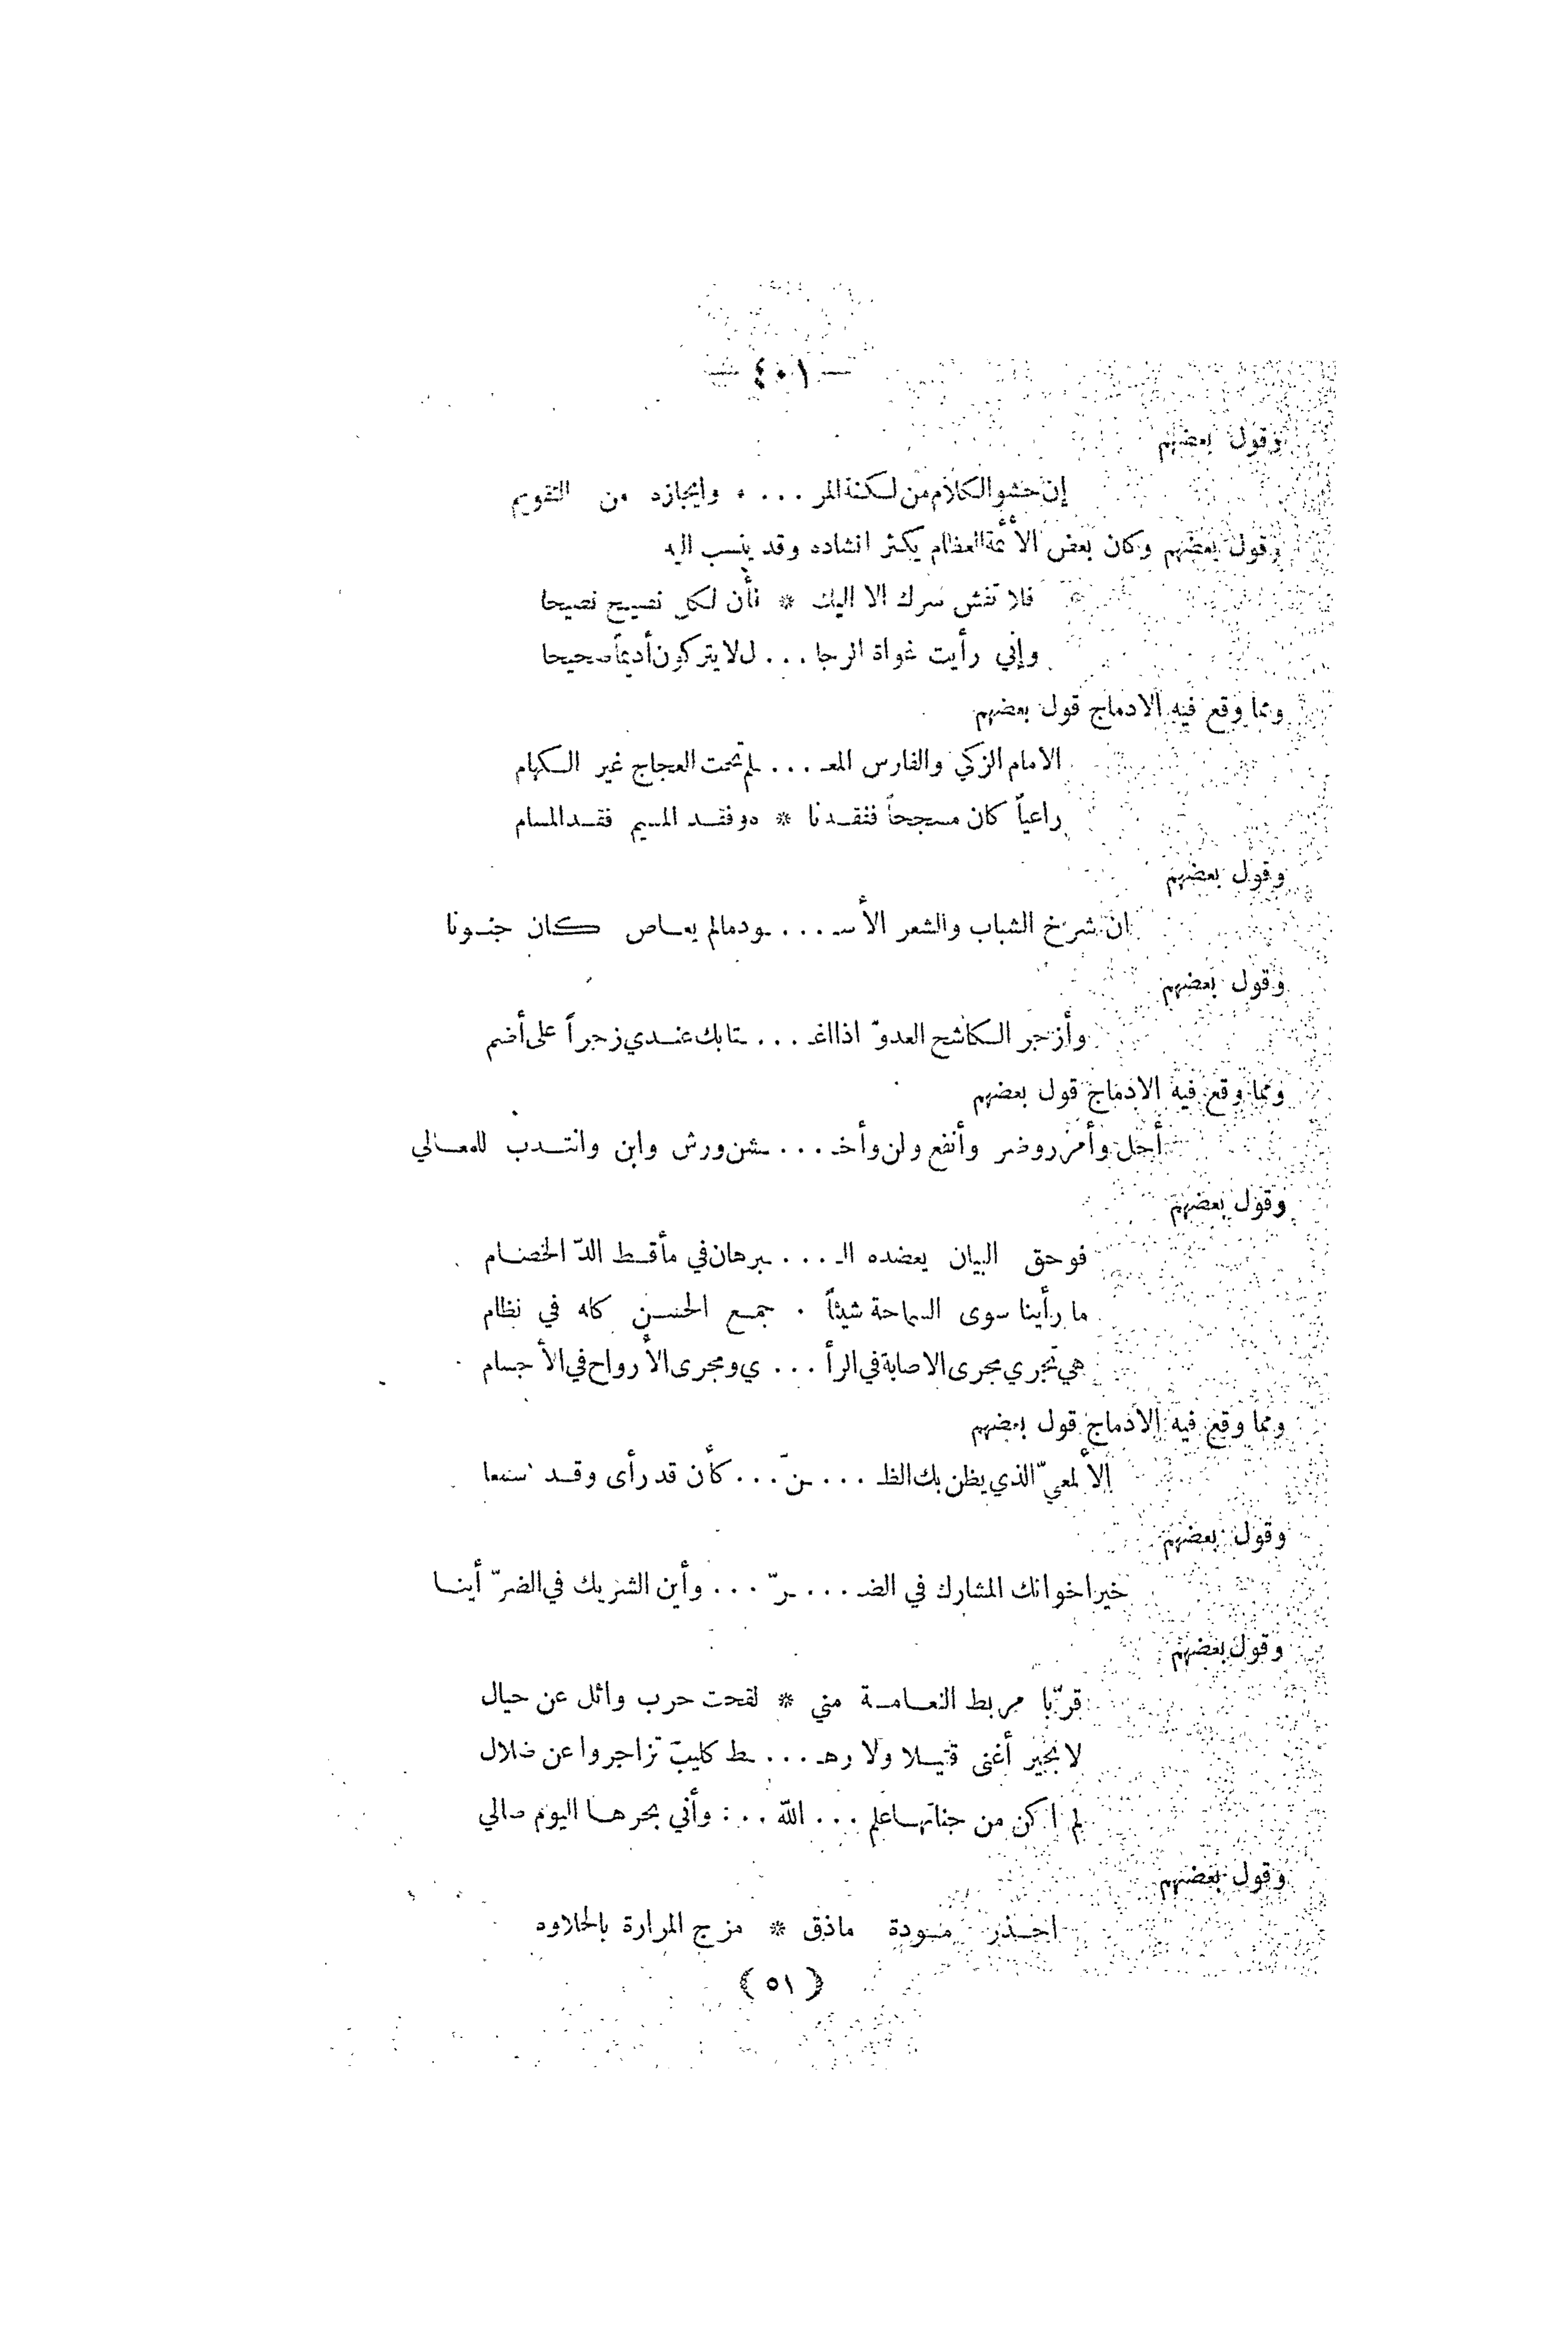 — ٤٠١ —
وقول بعضهم
إن حشو الكلام من لكنة المر ... وإيجازه من التقويم
وقول بعضهم وكان بعض الأئمة العظام يكثر انشاده وقد ينسب اليه
فلا تفش سرك الا اليك * فأن لكل نصيح نصيحا
وإني رأيت غواة الرجا ... ل لا يتركون أديماً صحيحا
ومما وقع فيه الادماج قول بعضهم
الامام الزكي والفارس المعـ ... ـلم تحت العجاج غير الكهام
راعياً كان مسجحاً ففقدنا * ه وفقد المسيم فقد المسام
وقول بعضهم
ان شرخ الشباب والشعر الأسـ .... ـود مالم يعاص كان جنونا
وقول بعضهم
وأزجر الكاشح العدوّ اذا اغـ ... ـتابك عندي زجراً على أضم
ومما وقع فيه الادماج قول بعضهم
أجل وأمر روضر وأنفع ولن وأخـ .... ـشن ورش وابن وانتدب للمعالي
وقول بعضهم
فوحق البيان يعضده الـ .... ـبرهان في مأقط الدّ الخصام
ما رأينا سوى السماحة شيئاً . جمع الحسن كله في نظام
هي تجري مجرى الاصابة في الرأ ... ي ومجرى الأرواح في الأجسام
ومما وقع فيه الادماج قول بعضهم
الألمعيّ الذي يظن بك الظـ ... ـنّ ... كأن قد رأى وقد سمعا
وقول بعضهم
خير اخوانك المشارك في الضـ .... ـرّ ... وأين الشريك في الضرّ أينا
وقول بعضهم
قرّبا مربط النعامة مني * لقحت حرب وائل عن حيال
لا بجير أغنى قتيلا ولا رهـ .... ـط كليب تزاجروا عن ضلال
لم اكن من جناتها علم ... اللّه ... وأني بحرها اليوم صالي
وقول بعضهم
احذر مودة ماذق * مزج المرارة بالحلاوه
( ٥١ )